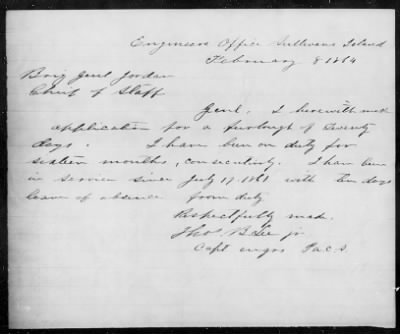 Engineers Office Sullivans Island
February 8 1864
Brig Genl Jordan
Chief of Staff
Genl. I herewith make
application for a furlough of twenty
days. I have been on duty for
sixteen months, consecutively. I have been
in service since July 17 1861 with ten days
leave of absence from duty
Respectfully made.
Thos. B Lee jr
Capt engrs P.a.c.s